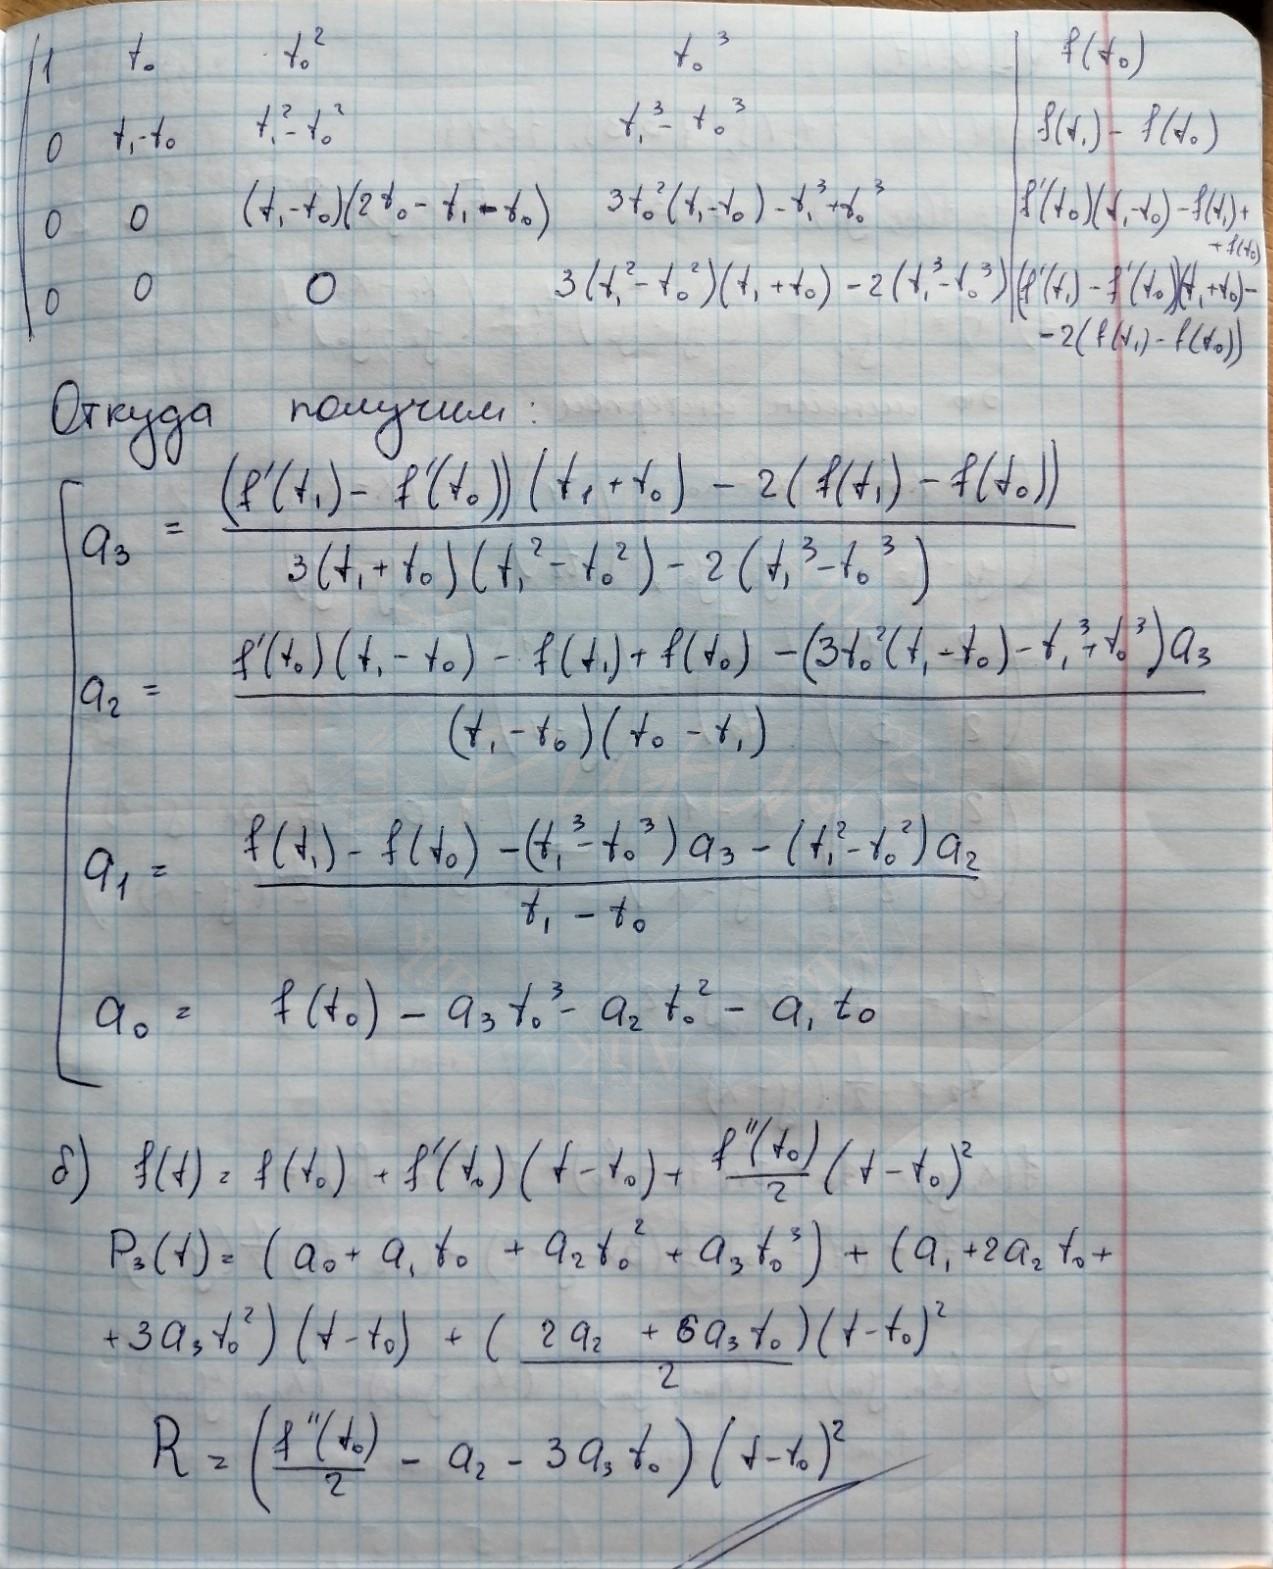 1 t₀ t₀² t₀³ | f(t₀)
0 t₁-t₀ t₁²-t₀² t₁³-t₀³ | f(t₁) - f(t₀)
0 0 (t₁-t₀)(2t₀-t₁-t₀) 3t₀²(t₁-t₀)-t₁³+t₀³ | f'(t₀)(t₁-t₀)-f(t₁)+
+f(t₀)
0 0 0 3(t₁²-t₀²)(t₁+t₀)-2(t₁³-t₀³) | (f'(t₁)-f'(t₀))(t₁+t₀)-
-2(f(t₁)-f(t₀))
Откуда получим:
a₃ = ((f'(t₁)-f'(t₀))(t₁+t₀) - 2(f(t₁)-f(t₀))) / (3(t₁+t₀)(t₁²-t₀²)-2(t₁³-t₀³))
a₂ = (f'(t₀)(t₁-t₀) - f(t₁)+f(t₀) -(3t₀²(t₁-t₀)-t₁³+t₀³)a₃) / ((t₁-t₀)(t₀-t₁))
a₁ = (f(t₁)-f(t₀)-(t₁³-t₀³)a₃-(t₁²-t₀²)a₂) / (t₁-t₀)
a₀ = f(t₀) - a₃t₀³ - a₂t₀² - a₁t₀
б) f(t) = f(t₀) + f'(t₀)(t-t₀) + f''(t₀)/2 (t-t₀)²
P₃(t) = (a₀+a₁t₀+a₂t₀²+a₃t₀³) + (a₁+2a₂t₀+
+3a₃t₀²)(t-t₀) + ((2a₂+6a₃t₀)/2)(t-t₀)²
R = (f''(t₀)/2 - a₂ - 3a₃t₀)(t-t₀)²